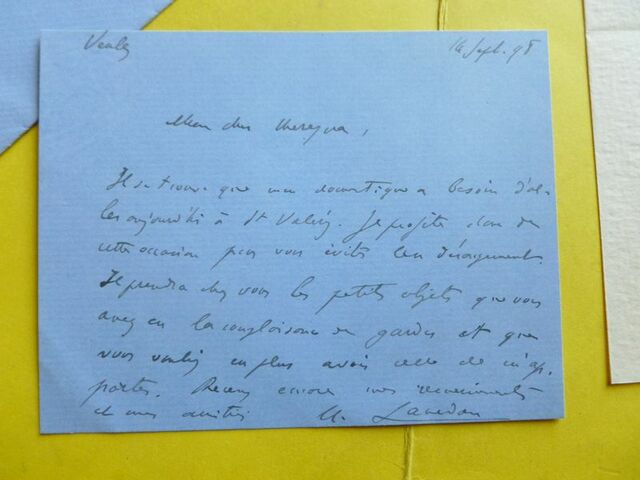 Veules 14 Sept. 98
Mon cher
Il se trouve que mon domestique a besoin d'al-
ler aujourd'hui à St Valéry. Je profite donc de
cette occasion pour vous éviter un dérangement.
Il prendra chez vous les petits objets que vous
avez eu la complaisance de garder et que
vous vouliez en plus avoir celle de m'ap-
porter. Recevez encore mes remerciements
et mes amitiés H. Lavedan